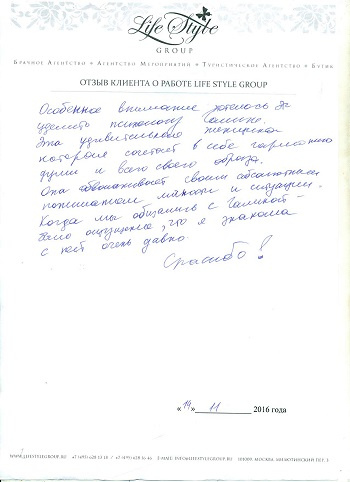 Life Style
GROUP
БРАЧНОЕ АГЕНТСТВО • АГЕНТСТВО МЕРОПРИЯТИЙ • ТУРИСТИЧЕСКОЕ АГЕНТСТВО • БУТИК
ОТЗЫВ КЛИЕНТА О РАБОТЕ LIFE STYLE GROUP
Особенное внимание хотелось бы
уделить психологу Галине.
Эта удивительная женщина
которая сочетает в себе гармонию
души и всего своего образа.
Она своим абсолютным
пониманием и ситуации.
Когда мы общались с Галиной -
было ощущение, что я знакома
с ней очень давно.
Спасибо!
«14» 11 2016 года
WWW.LIFESTYLEGROUP.RU +7 (495) 628 13 18 / +7 (495) 628 16 46 E-MAIL: INFO@LIFESTYLEGROUP.RU МОСКВА,